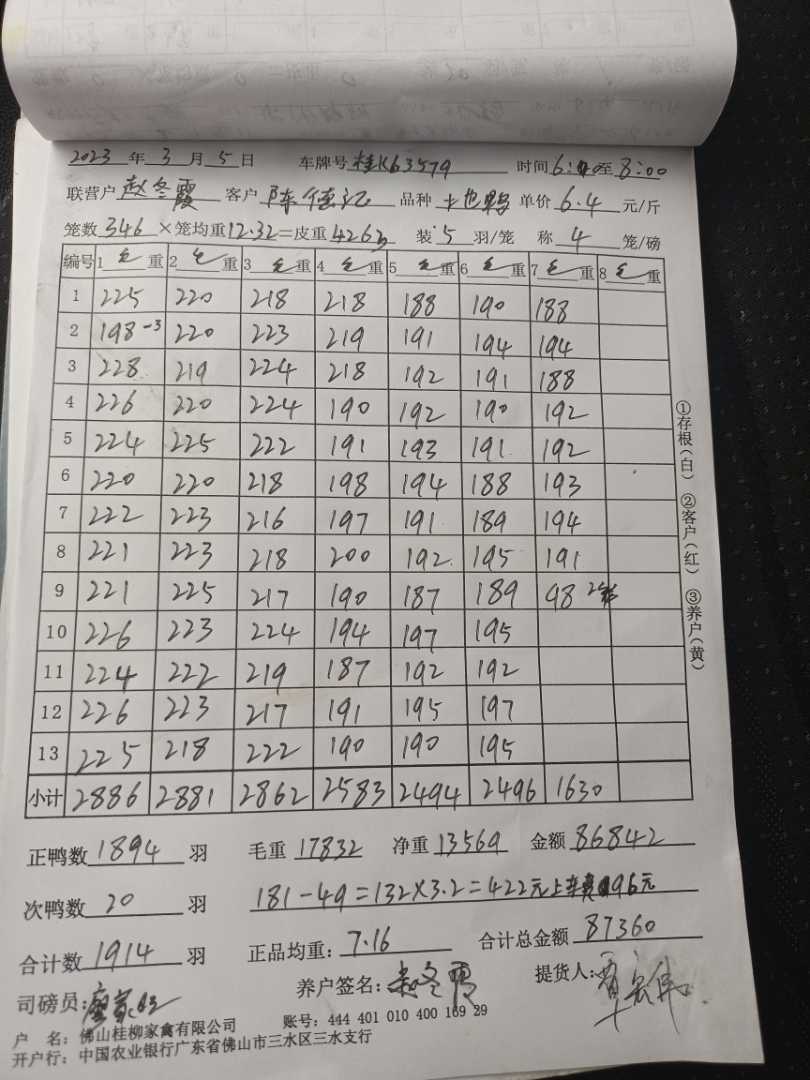 2023 年 3 月 5 日 车牌号 桂K63579 时间 6:40 至 8:00
联营户 赵冬霞 客户 陈德记 品种 土也鸭 单价 6.4 元/斤
笼数 346 ×笼均重 12.32 =皮重 4263 装 5 羽/笼 称 4 笼/磅
编号 1 毛 重 2 毛 重 3 毛 重 4 毛 重 5 毛 重 6 毛 重 7 毛 重 8 毛 重
1 225 220 218 218 188 190 188
2 198-3 220 223 219 191 194 194
3 228 219 224 218 192 191 188
4 226 220 224 190 192 190 192
5 224 225 222 191 193 191 192
6 220 220 218 198 194 188 193
7 222 223 216 197 191 189 194
8 221 223 218 200 192 195 191
9 221 225 217 190 187 189 98
10 226 223 224 194 197 195
11 224 222 219 187 192 192
12 226 223 217 191 195 197
13 225 218 222 190 190 195
小计 2886 2881 2862 2583 2494 2496 1630
正鸭数 1894 羽 毛重 17832 净重 13569 金额 86842
次鸭数 20 羽 181-49=132×3.2=422元上车费96元
合计数 1914 羽 正品均重: 7.16 合计总金额 87360
司磅员: 养户签名: 赵冬霞 提货人:
户 名: 佛山桂柳家禽有限公司 账号: 444 401 010 400 169 29
开户行: 中国农业银行广东省佛山市三水区三水支行
①存根(白) ②客户(红) ③养户(黄)